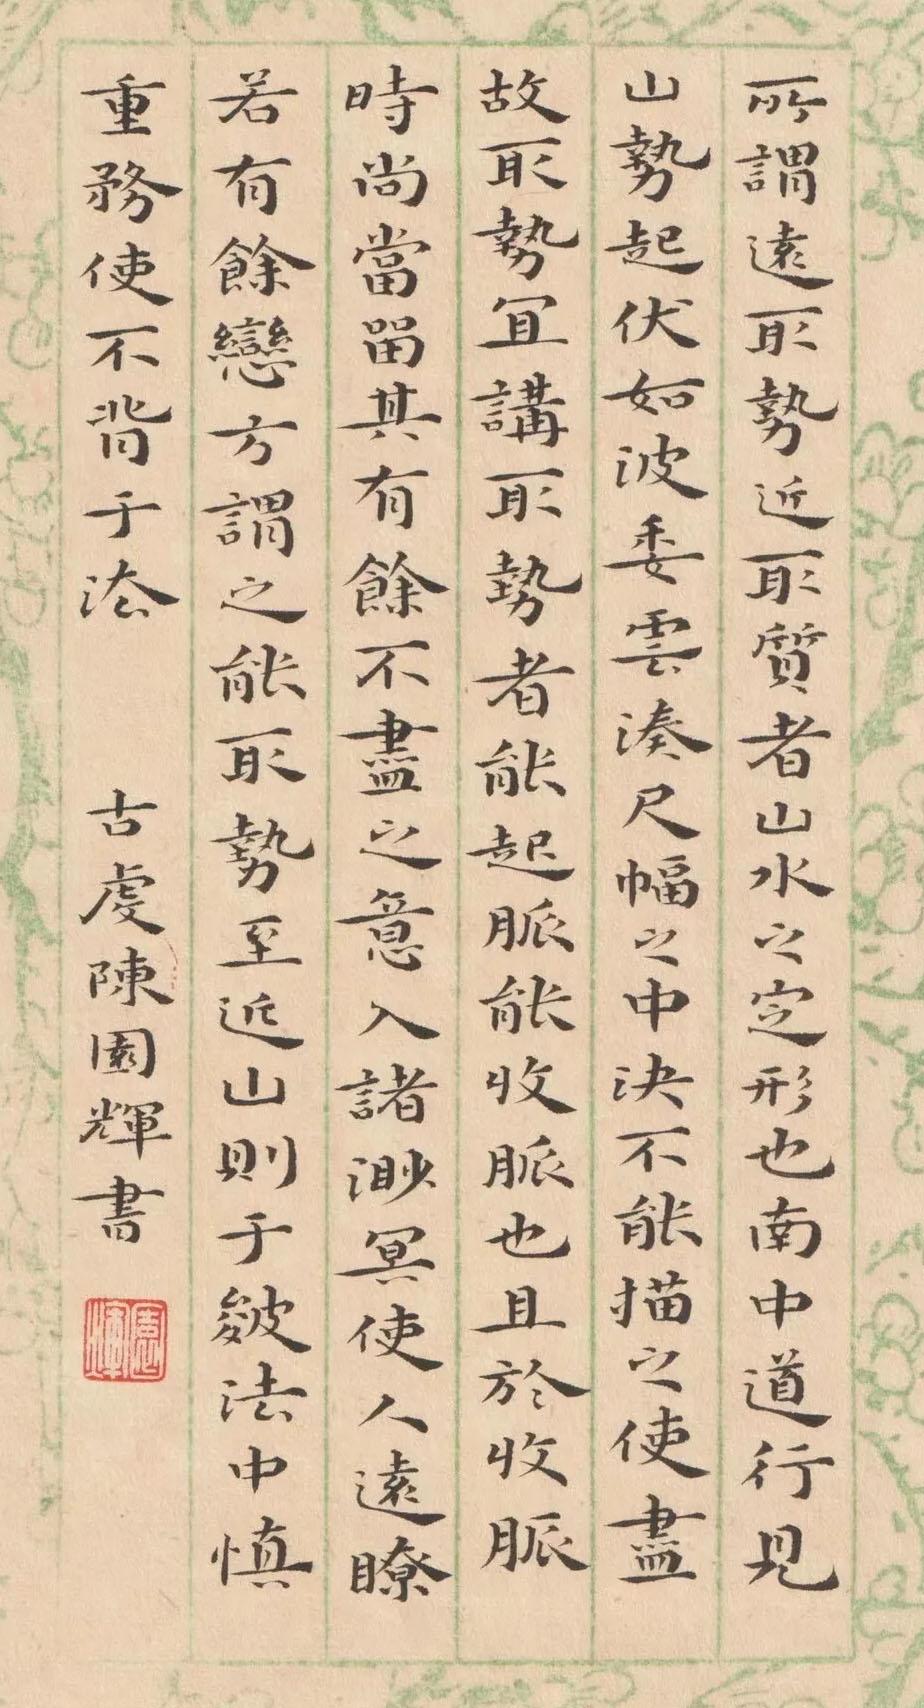 所謂遠取勢近取質者山水之定形也南中道行見
山勢起伏如波委雲湊尺幅之中決不能描之使盡
故取勢宜講取勢者能起脈能收脈也且於收脈
時尚當留其有餘不盡之意入諸渺冥使人遠瞭
若有餘戀方謂之能取勢至近山則于皴法中慎
重務使不背于法
古虞陳園輝書
園輝